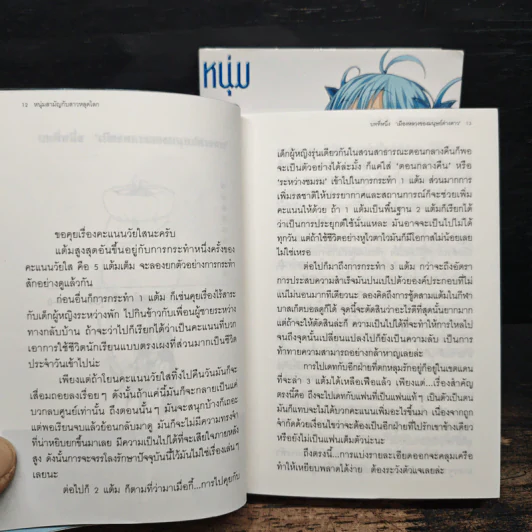 หนุ่ม
12 หนุ่มสามัญกับสาวหลุดโลก
ขอคุยเรื่องคะแนนวัยใสนะครับ
แต้มสูงสุดอันขึ้นอยู่กับการกระทำหนึ่งครั้งของ
คะแนนวัยใส คือ 5 แต้มเต็ม จะลองยกตัวอย่างการกระทำ
สักอย่างดูแล้วกัน
ก่อนอื่นก็การกระทำ 1 แต้ม ก็เช่นคุยเรื่องไร้สาระ
กับเด็กผู้หญิงระหว่างพัก ไปกินข้าวกับเพื่อนผู้ชายระหว่าง
ทางกลับบ้าน ถ้าจะว่าไปก็เรียกได้ว่าเป็นคะแนนที่บวก
เอาการใช้ชีวิตนักเรียนแบบตรงเผงที่ส่วนมากเป็นชีวิต
ประจำวันเข้าไปน่ะ
เพียงแต่ถ้าโยนคะแนนวัยใสทิ้งไปคืนวันมันก็จะ
เสื่อมถอยลงเรื่อยๆ ดังนั้นถ้าแค่นี้มันก็จะกลายเป็นแค่
บวกลบศูนย์เท่านั้น ถึงตอนนั้นๆ มันจะสนุกบ้างก็เถอะ
แต่พอเรียนจบแล้วย้อนกลับมาดู มันก็จะไม่มีความทรงจำ
ที่น่าหยิบยกขึ้นมาเลย มีความเป็นไปได้ที่จะเสียใจภายหลัง
สูง ดังนั้นการจะจรรโลงรักษาปัจจุบันนี้ไว้มันไม่ใช่เรื่องเล่นๆ
เลยนะ
ต่อไปก็ 2 แต้ม ก็ตามที่ว่ามาเมื่อกี้...การไปคุยกับ
บทที่หนึ่ง 13
เด็กผู้หญิงรุ่นเดียวกันในสวนสาธารณะตอนกลางคืนก็พอ
จะเป็นตัวอย่างได้ละมั้ง ก็แค่ใส่ 'ตอนกลางคืน' หรือ
'ระหว่างชมรม' เข้าไปในการกระทำ 1 แต้ม ส่วนมากการ
เพิ่มรสชาติให้บรรยากาศและสถานการณ์ก็จะช่วยเพิ่ม
คะแนนให้ด้วย ถ้า 1 แต้มเป็นพื้นฐาน 2 แต้มก็เรียกได้
ว่าเป็นการประยุกต์ใช้นั่นแหละ มันอาจจะเป็นไปไม่ได้
ทุกวัน แต่ถ้าใช้ชีวิตอย่างหูไวตาไวมันก็มีโอกาสไม่น้อยเลย
ไม่ใช่เหรอ
ต่อไปก็มาถึงการกระทำ 3 แต้ม กว่าจะถึงอัตรา
การประสบความสำเร็จมันปนเปไปด้วยองค์ประกอบที่ไม่
แน่ไม่นอนมากทีเดียวนะ ลองคิดถึงการชู้ตสามแต้มในกีฬา
บาสเก็ตบอลดูก็ได้ จุดนี้จะตัดสินว่าอะไรดีที่สุดนั้นยากมาก
แต่ถ้าจะให้ตัดสินล่ะก็ ความเป็นไปได้ที่จะทำให้การไหลไป
จนถึงจุดนั้นเปลี่ยนแปลงไปก็ยังเป็นความลับ เป็นการ
ท้าทายความสามารถอย่างกล้าหาญเลยล่ะ
การไปเดทกับอีกฝ่ายที่ตกหลุมรักอยู่ก็อยู่ในเขตแดน
ที่จะล่า 3 แต้มได้เหลือเฟือแล้ว เพียงแต่...เรื่องสำคัญ
ตรงนี้คือ ถ้าจะไปเดทกับแฟนที่เป็นแฟนแท้ๆ เป็นตัวเป็นตน
มันก็แทบจะไม่ได้บวกคะแนนเพิ่มอะไรขึ้นมา เนื่องจากถูก
จำกัดด้วยเงื่อนไขว่าจะต้องเป็นอีกฝ่ายที่ไปรักเขาข้างเดียว
หรือยังไม่เป็นแฟนเต็มตัวน่ะนะ
ถึงตรงนี้...การแบ่งรายละเอียดออกจะคลุมเครือ
ทำให้เหยียบพลาดได้ง่าย ต้องระวังตัวเอาเลยล่ะ